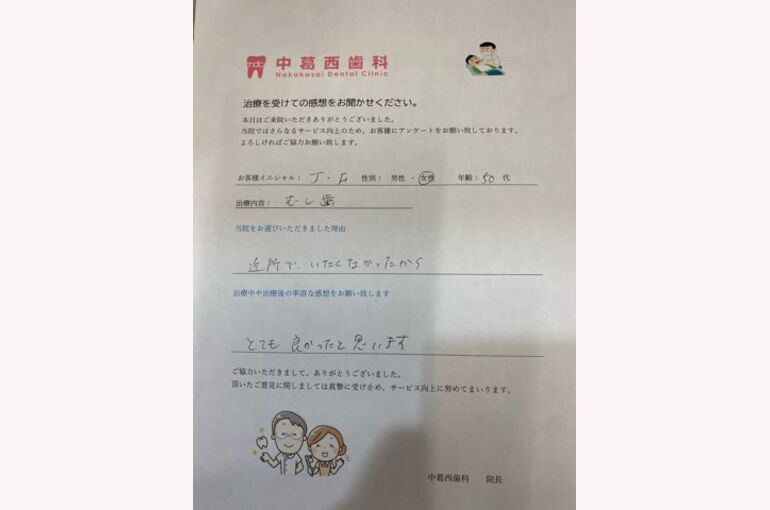 中葛西歯科
Nakakasai Dental Clinic
治療を受けての感想をお聞かせください。
本日はご来院いただきありがとうございました。
当院ではさらなるサービス向上のため、お客様にアンケートをお願い致しております。
よろしければご協力お願い致します。
お客様イニシャル： J・ 性別： 男性 ・ 女性 年齢：50 代
治療内容： むし歯
当院をお選びいただきました理由
近所で、いたくなかったから
治療中や治療後の率直な感想をお願い致します
とても 良かったと思います
ご協力いただきまして、ありがとうございました。
頂いたご意見に関しましては真摯に受け止め、サービス向上に努めてまいります。
中葛西歯科 院長